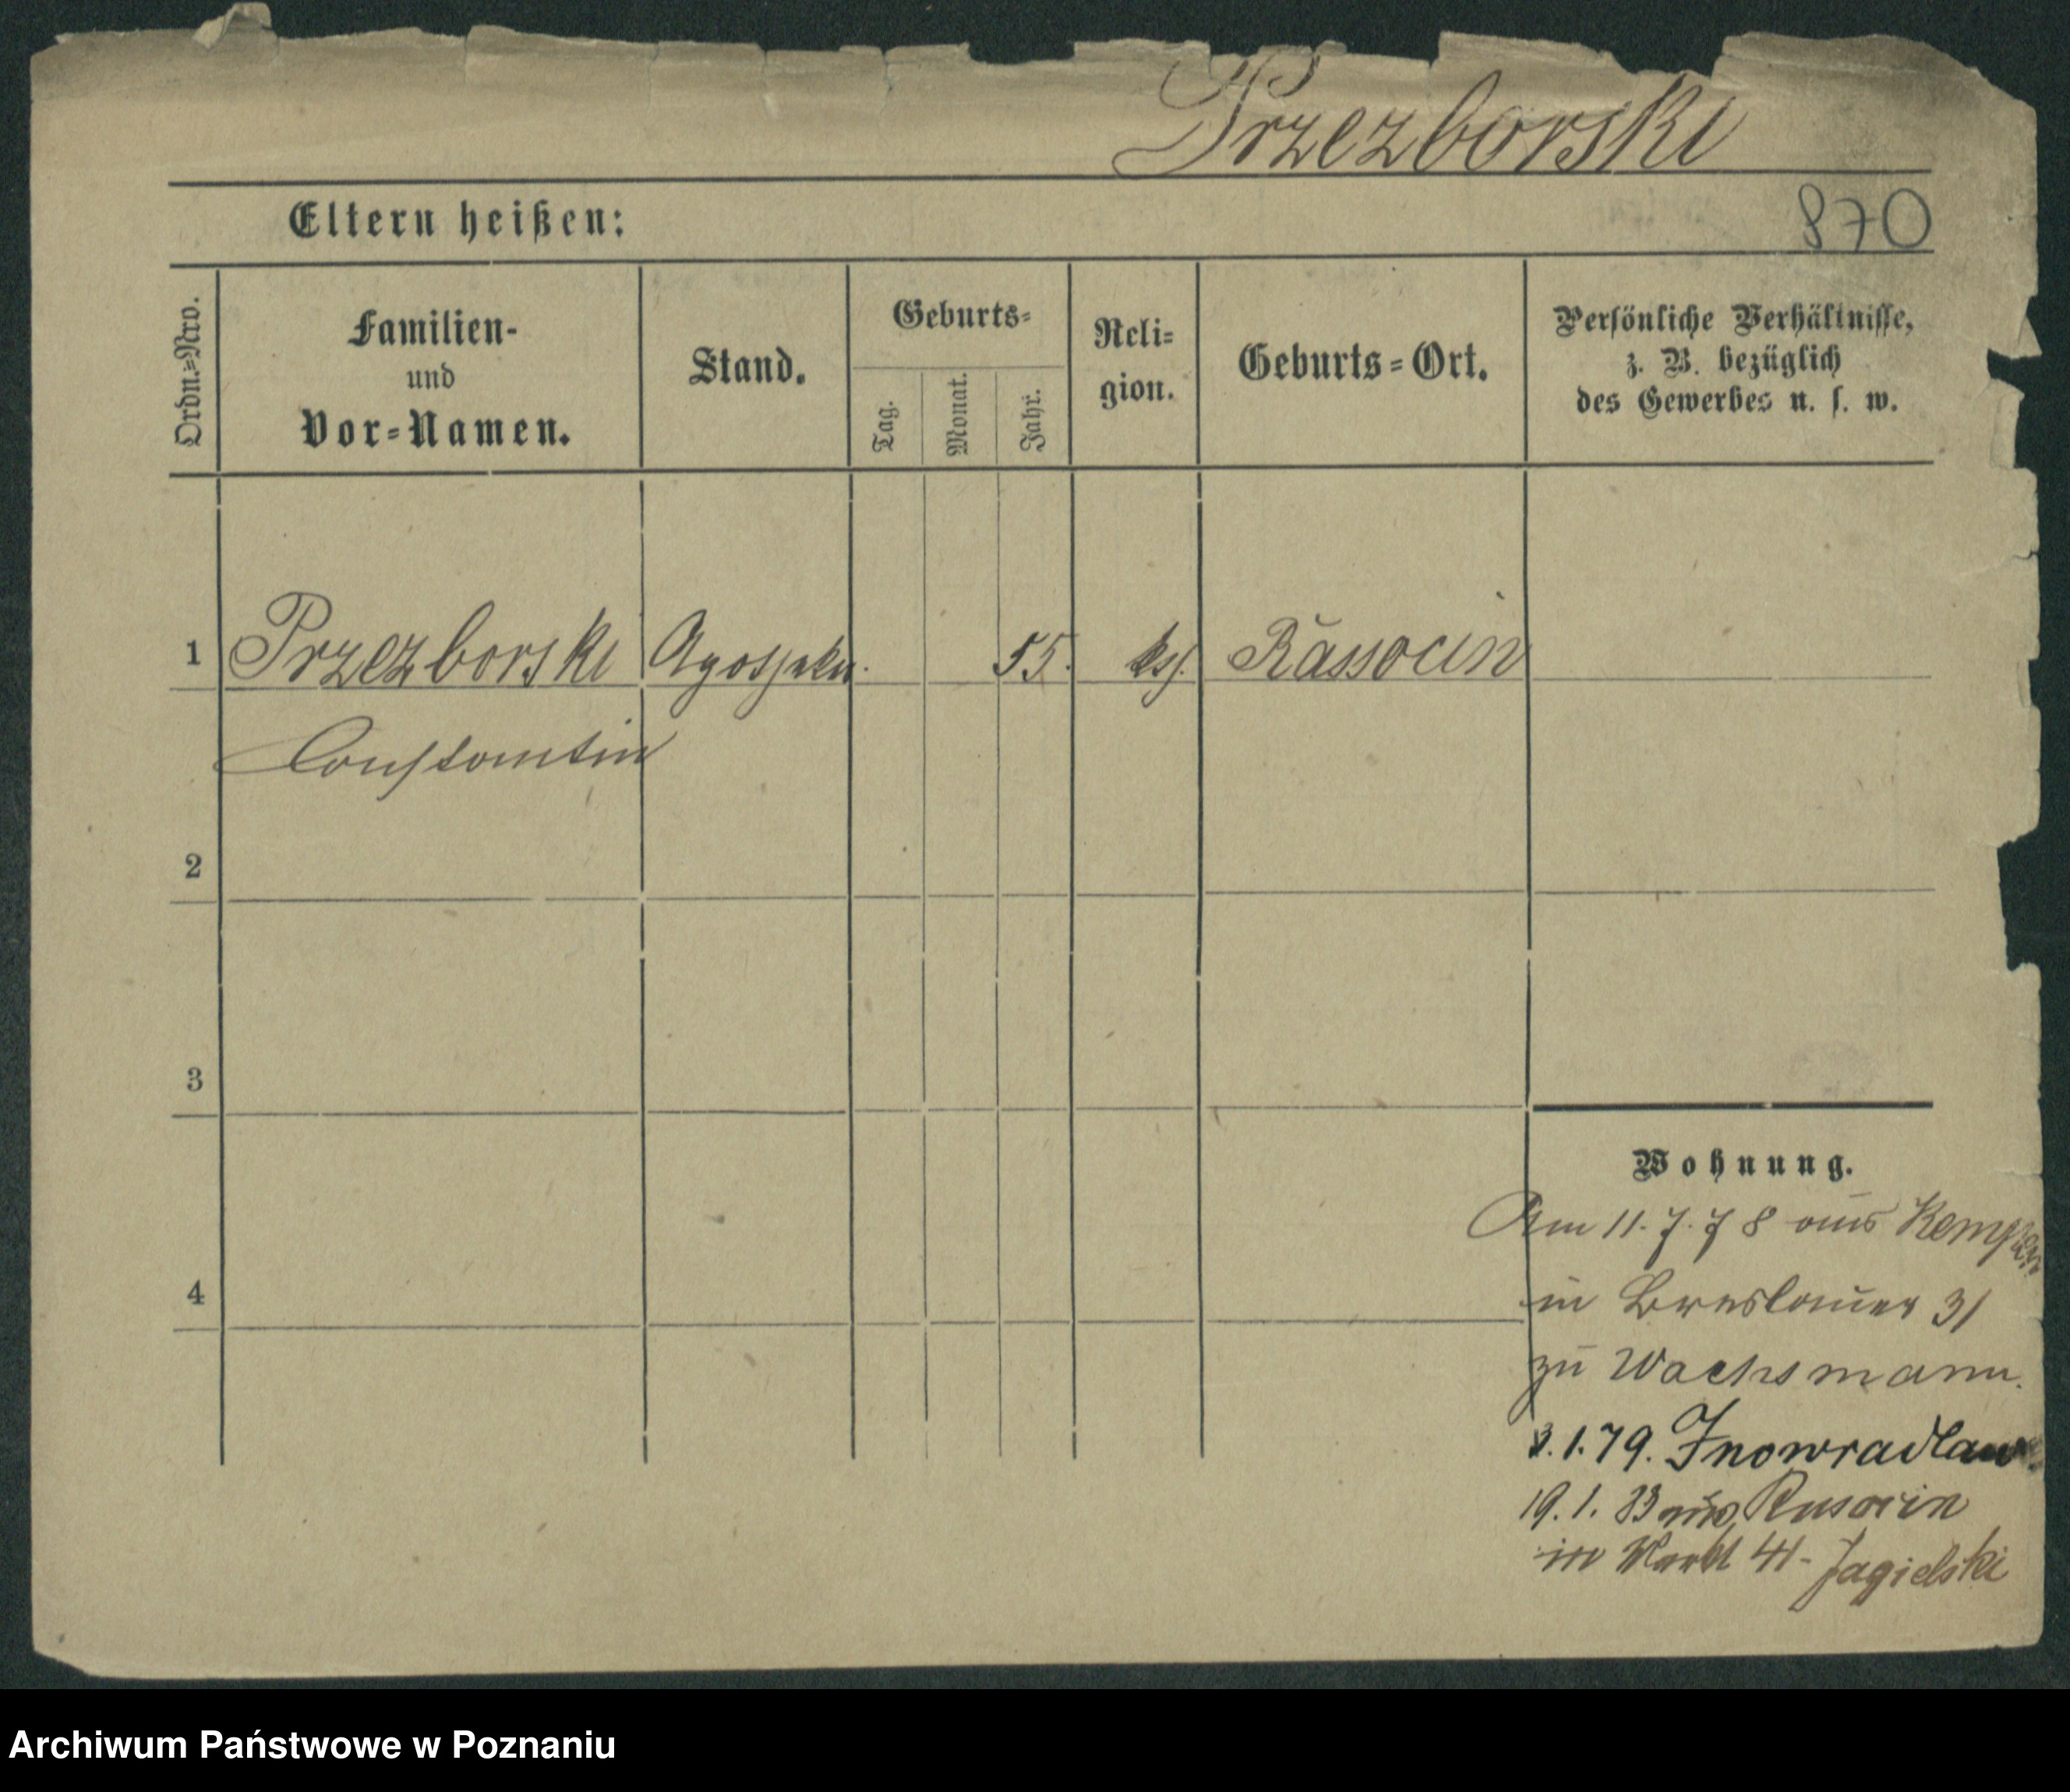 Przezborski
Eltern heißen:
870
Ordn.=Nro.
Familien-
und
Vor=Namen.
Stand.
Geburts=
Tag.
Monat.
Jahr.
Reli=
gion.
Geburts=Ort.
Persönliche Verhältnisse,
z. B. bezüglich
des Gewerbes u. s. w.
1 Przezborski 55. Rassocin
Constantin
2
3
4
Wohnung.
Am 11.7.78 aus Kempen
in Breslauer 31
zu Wachsmann.
3.1.79. Inowradlaw
19.1.83 aus Rusocin
in Markt 41- Jagielski
Archiwum Państwowe w Poznaniu